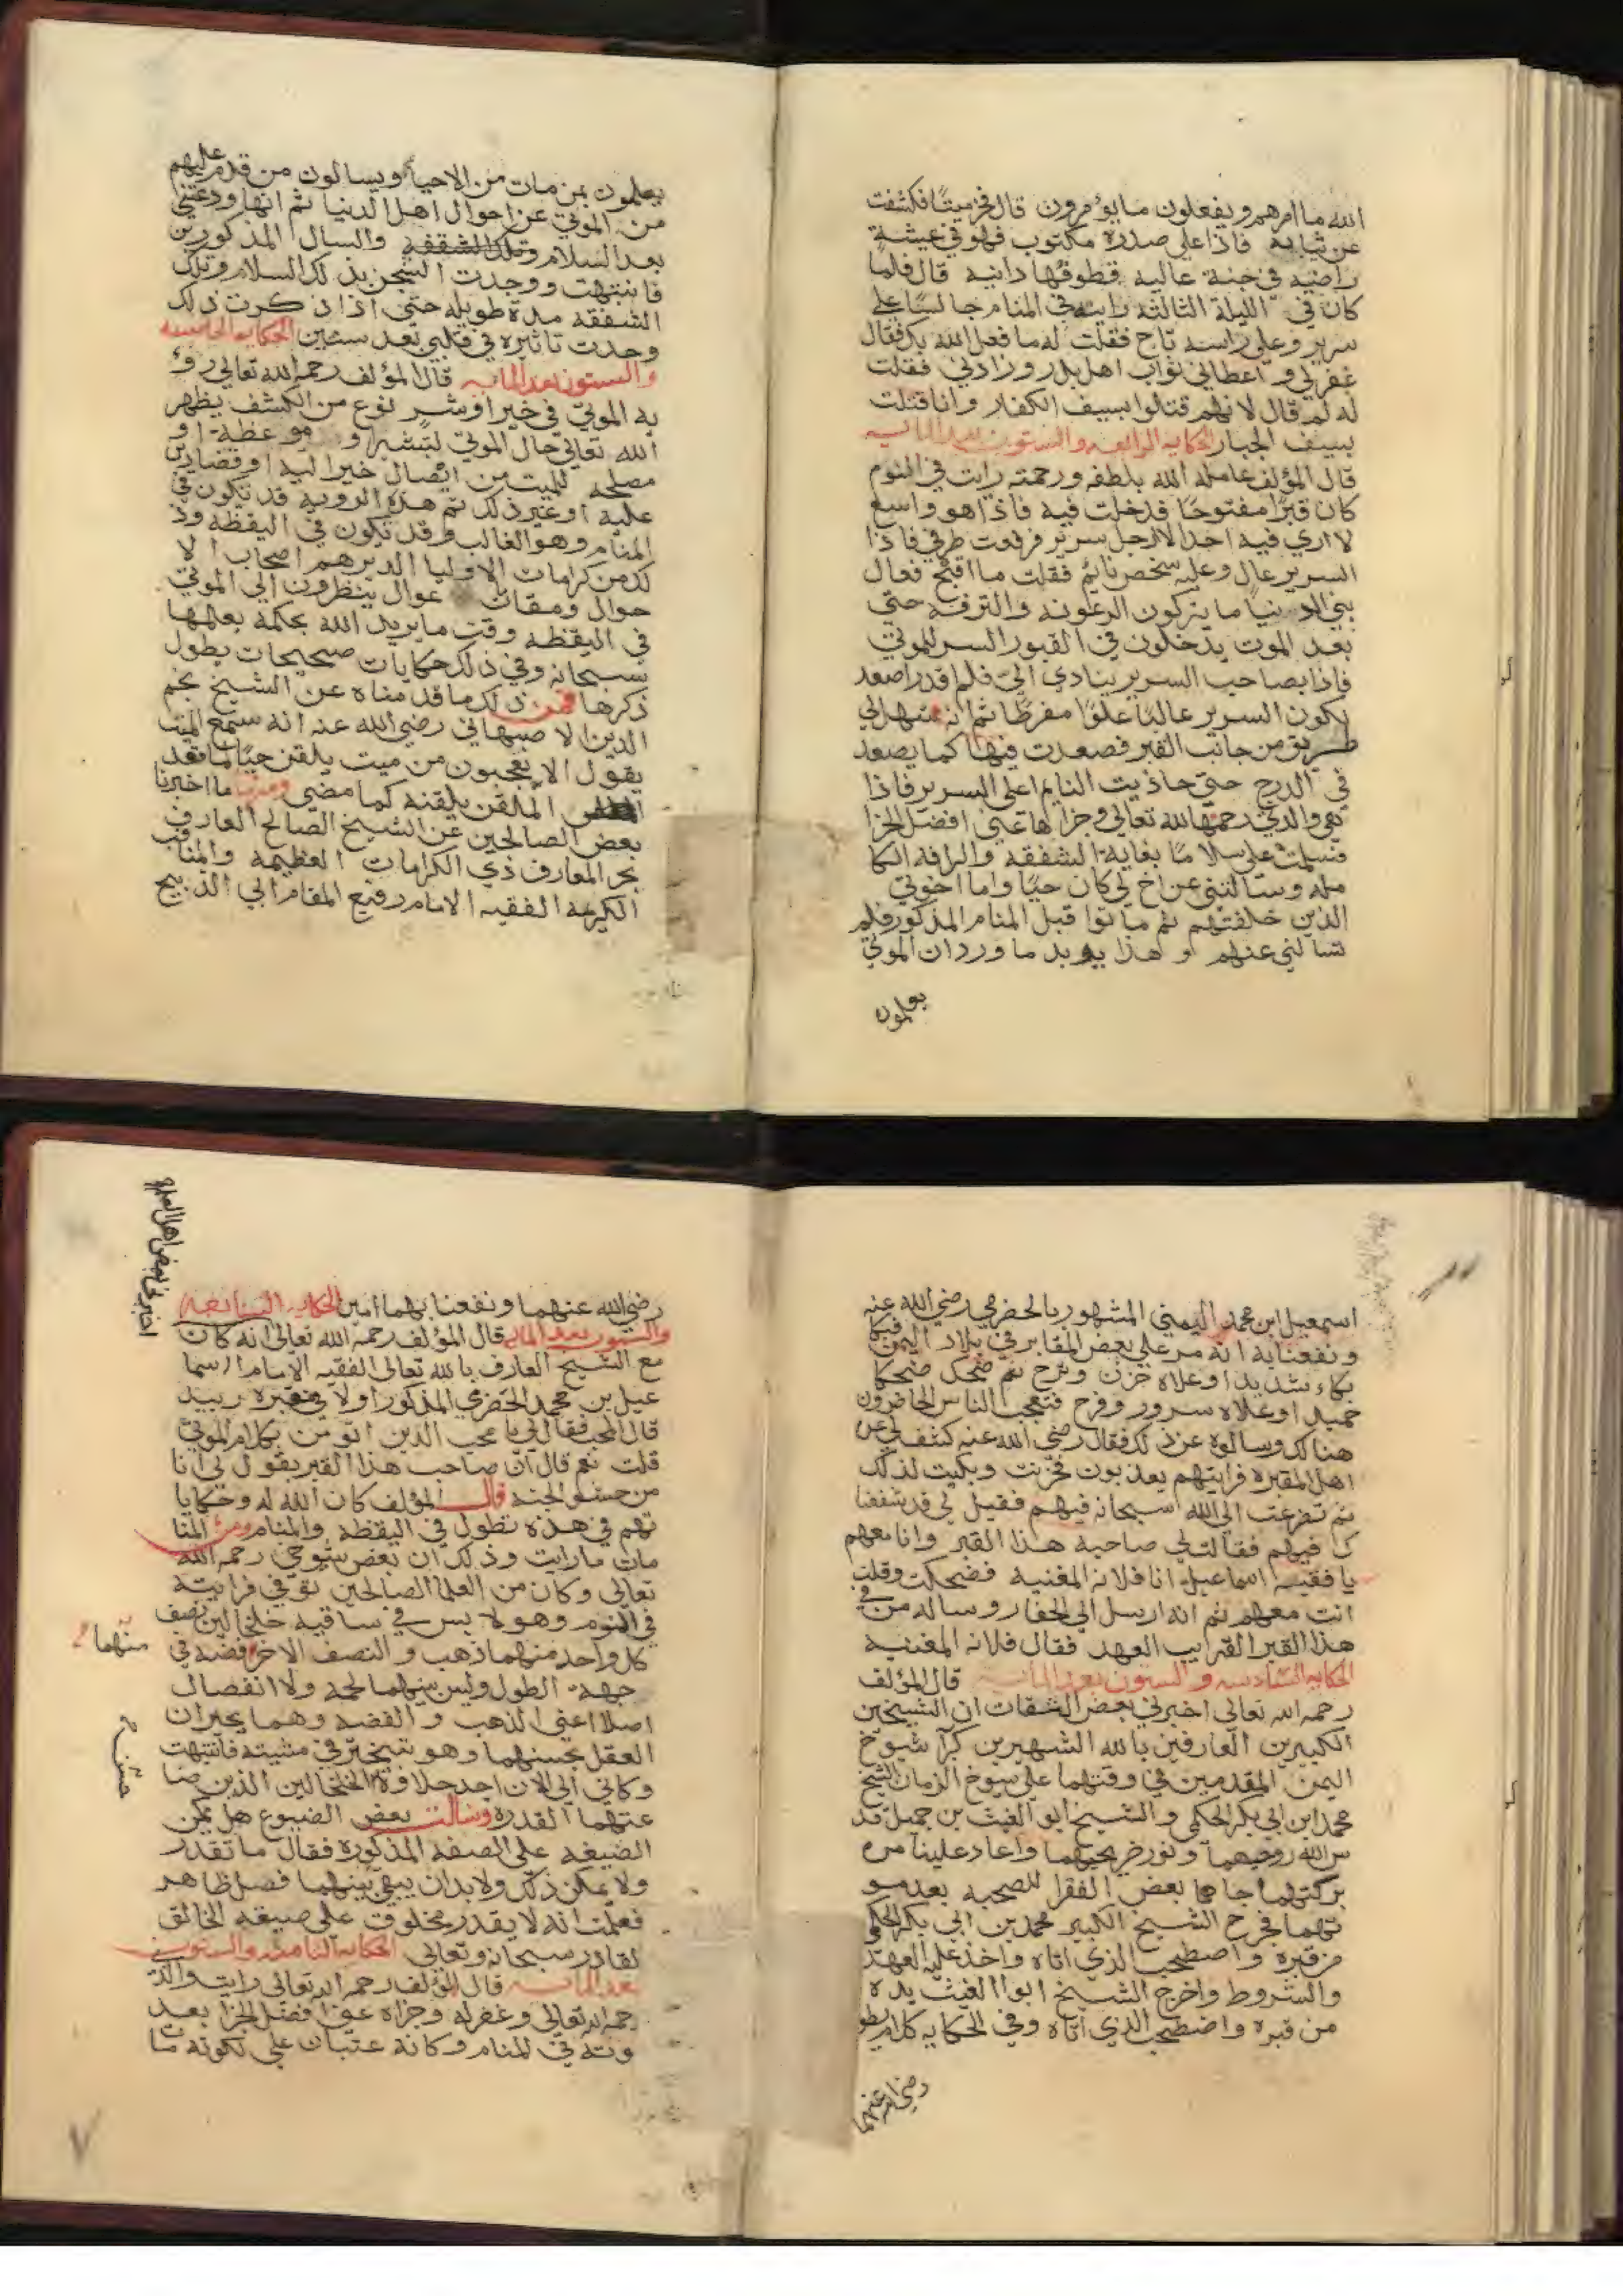 الله ما امرهم ويفعلون ما يؤمرون قال فخر ميتًا فكشفت
عن ثيابه فاذا على صدره مكتوب فهو في عيشة
راضيه في جنة عاليه قطوفها دانيه قال فلما
كان في الليلة الثالثه رايته في المنام جالسًا على
سرير وعلى راسه تاج فقلت له ما فعل الله بك فقال
غفر لي واعطاني ثواب اهل بدر وزادني فقلت
له لم قال لانهم قتلوا بسيف الكفار وانا قتلت
بسيف الجبار الحكايه الرابعه والستون بعد المايه
قال المؤلف عامله الله بلطفه ورحمته رايت في النوم
كان قبرًا مفتوحًا فدخلت فيه فاذا هو واسع
لا اري فيه احد الا رجل سرير فرفعت طرفي فاذا
السرير عال وعليه شخص نائم فقلت ما اقبح فعال
بني الدنيا ما يتركون الرعونه والترفه حتي
بعد الموت يدخلون في القبور السرر للموتي
فاذا بصاحب السرير ينادي الي فلم اقدر اصعد
لكون السرير عاليًا علوًا مفرطًا ثم انه سهل لي
طريق من جانب القبر فصعدت فيها كما يصعد
في الدرج حتى حاذيت النايم اعلى السرير فاذا
هي والدتي رحمها الله تعالى وجزاها عني افضل الجزا
فسلمت على سلامًا بغاية الشفقه والرافه الكا
مله وسالتني عن اخ لي كان حيًا واما اخوتي
الذين خلفتهم ثم ماتوا قبل المنام المذكور فلم
تسالني عنهم و هذا يويد ما ورد ان الموتي
يعلمون
يعلمون بمن مات من الاحياء ويسالون من قدم عليهم
من الموتي عن احوال اهل الدنيا ثم انها ودعتني
بعد السلام وتلك الشفقه والسال المذكورين
فانتبهت ووجدت الشجن بذلك السلام وتلك
الشفقه مدة طويله حتى اذا ذكرت ذلك
وجدت تاثيره في قلبي بعد سنين الحكايه الخامسه
والستون بعد المايه قال المؤلف رحمه الله تعالي رؤ
يه الموتي في خير او شر نوع من الكشف يظهر
الله تعالى حال الموتي لتبشير او موعظة او
مصلحه للميت من ايصال خير اليه او قضا دين
عليه او غير ذلك ثم هذه الرويه قد تكون في
المنام وهو الغالب وقد تكون في اليقظه وذ
لك من كرامات الاوليا الذين هم اصحاب الا
حوال ومقات عوال ينظرون الي الموتي
في اليقظه وقت ما يريد الله بحكمة يعلمها
سبحانه وفي ذلك حكايات صحيحات يطول
ذكرها فمن ذلك ما قدمناه عن الشيخ نجم
الدين الاصبهاني رضي الله عنه انه سمع الميت
يقول الا تعجبون من ميت يلقن حيًا لما قعد
الملقن يلقنه كما مضي ومنها ما اخبرنا
بعض الصالحين عن الشيخ الصالح العارف
بحر المعارف ذي الكرامات العظيمه والمناقب
الكريمة الفقيه الامام رفيع المقام ابي الذبيح
اسمعيل ابن محمد اليمني المشهور بالحضرمي رضي الله عنه
ونفعنا به انه مر على بعض المقابر في بلاد اليمن فبكا
بكاء شديدا وعلاه حزن وترح ثم ضحك ضحكا
حميدا وعلاه سرور وفرح فتعجب الناس الحاضرون
هنالك وسالوه عن ذلك فقال رضي الله عنه كشف لي عن
اهل المقبره فرايتهم يعذبون فحزنت وبكيت لذلك
ثم تضرعت الى الله سبحانه فيهم فقيل لي قد شفعنا
ك فيهم فقالت لي صاحبة هذا القبر وانا معهم
يا فقيه اسماعيل انا فلانه المغنيه فضحكت وقلت
انت معهم ثم انه ارسل الى الحفار وساله من في
هذا القبر القريب العهد فقال فلانه المغنيه
الحكايه السادسه والستون بعد المايه قال المؤلف
رحمه الله تعالى اخبرني بعض الثقات ان الشيخين
الكبيرين العارفين بالله الشهيرين كبرا شيوخ
اليمن المقدمين في وقتهما على شيوخ الزمان الشيخ
محمد ابن ابي بكر الحكمي والشيخ ابو الغيث بن جميل قد
س الله روحهما ونور ضريحيهما واعاد علينا من
بركتهما جاها بعض الفقرا للصحبه بعد مو
تهما فخرج الشيخ الكبير محمد بن ابي بكر الحكمي
من قبره واصطحب الذي اتاه واخذ عليه العهد
والشروط واخرج الشيخ ابوا الغيث يده
من قبره واصطحب الذي اتاه وفي الحكايه كلام يطو
رضي الله عنهما
اخبرني بعض اهل العلم
رضي الله عنهما ونفعنا بهما امين الحكايه السابعه
والستون بعد المايه قال المؤلف رحمه الله تعالى انه كان
مع الشيخ العارف بالله تعالى الفقيه الامام اسما
عيل بن محمد الحضرمي المذكور اولا في مقبرة زبيد
قال المحب فقال لي يا محب الدين اتومن بكلام الموتي
قلت نعم قال ان صاحب هذا القبر يقول لي انا
من حشو الجنه قال المؤلف كان الله له وحكايا
تهم في هذه تطول في اليقظه والمنام ومن المنا
مات ما رايت وذلك ان بعض شيوخي رحمه الله
تعالى وكان من العلما الصالحين توفي فرايته
في النوم وهو لابس في ساقيه خلخالين نصف
كل واحد منهما ذهب والنصف الاخر فضه في
منهما
جهة الطول وليس بينهما لحمة ولا انفصال
اصلا اعني الذهب والفضه وهما يحيران
العقل بحسنهما وهو يتبختر في مشيته فانتبهت
وكاني الى الان اجد حلاوة الخلخالين الذين صا
غتهما القدره وسالت بعض الصيوغ هل يمكن
الصيغه على الصفه المذكوره فقال ما تقدر
ولا يمكن ذلك ولا بد ان يبقى بينهما فصل ظاهر
فعلمت انه لا يقدر مخلوق على صيغه الخالق
لقادر سبحانه وتعالى الحكايه الثامنه والستون
بعد المايه قال المؤلف رحمه الله تعالى رايت والدي
رحمه الله تعالى وغفر له وجزاه عني افضل الجزا بعد
وته في المنام وكانه عتبان علي لكونه ما